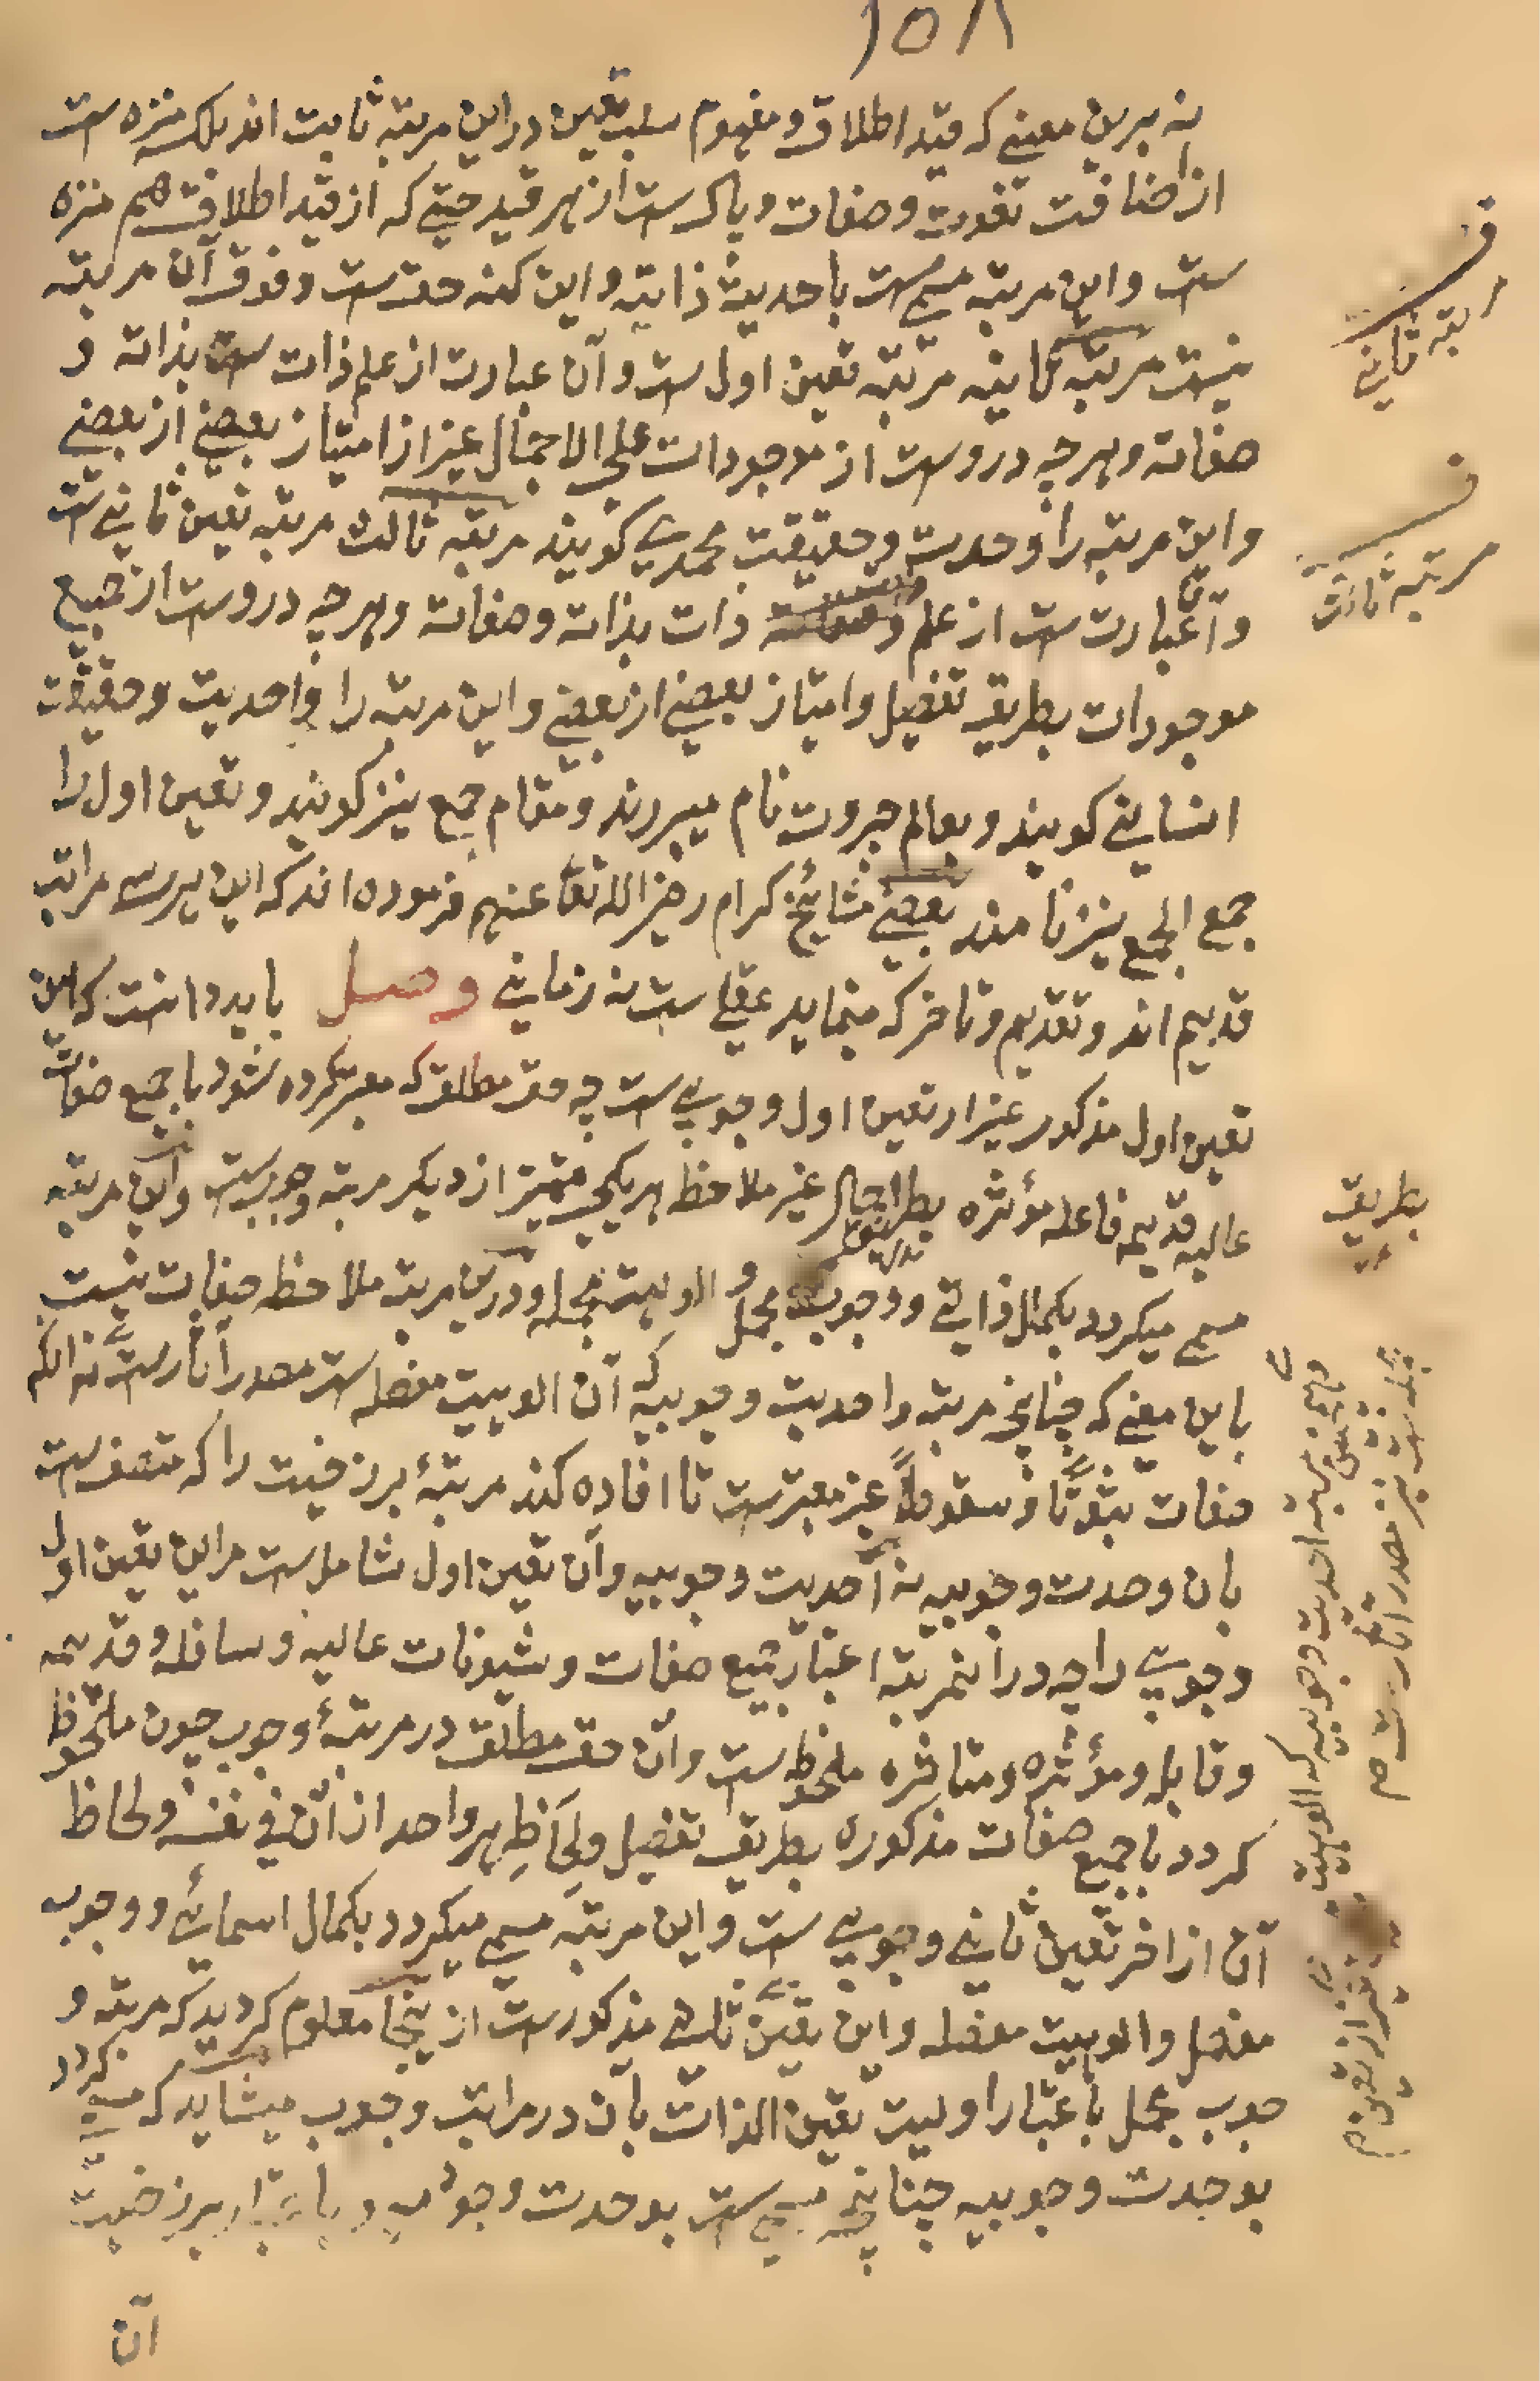 ۱۵۸
نه برین معنی که قید اطلاق و مفهوم سلب تعین دراین مرتبه ثابت اند بلکه منزه ست
از اضافت نعوت و صفات و پاک ست از هر قید حتی که از قید اطلاق هم منزه
ست و این مرتبه مسمی ست باحدیت ذاتیه و این کنه حق ست و فوق آن مرتبه
نیست مرتبه ثانیه مرتبه تعین اول ست و آن عبارت از علم ذات ست بذاته و
صفاته و هرچه دروست از موجودات علی الاجمال غیر از امتیاز بعضی از بعضی
و این مرتبه را وحدت و حقیقت محمدی گویند مرتبه ثالث مرتبه تعین ثانی ست
و آن عبارت ست از علم ذات بذاته و صفاته و هرچه دروست از جمیع
موجودات بطریق تفصیل و امتیاز بعضی از بعضی و این مرتبه را واحدیت و حقیقت
انسانی گویند و بعالم جبروت نام میبرند و مقام جمع نیز گویند و تعین اول را
جمع الجمع نیز نامند بعضی مشایخ کرام رضی الله تعا عنهم فرموده اند که این هر سه مراتب
قدیم اند و تقدیم و تاخر که مینماید عقلی ست نه زمانی وصل باید دانست که این
تعین اول مذکور غیر از تعین اول وجوبی ست چه حق مطلق که معبر کرده شود با جمیع صفات
عالیه قدیمه فاعله مؤثره بطریق اجمال غیر ملاحظه هریکی متمیز از دیگر مرتبه وجوبست و این مرتبه
مسمی میگردد بکمال ذاتی و وجوب مجمل و الوهیت مجمله و درین مرتبه ملاحظه صفات نیست
باین معنی که چنانچه مرتبه واحدیت وجوبیه که آن الوهیت مفصله ست مصدر آثارست نه آنکه
صفات ثبوتًا و سقوطًا غیر معتبرست تا افاده کند مرتبهٔ برزخیت را که متصف ست
بان وحدت وجوبیه نه احدیت وجوبیه و آن تعین اول شامل ست مر این تعین اول
وجوبی را چه در انمرتبه اعتبار جمیع صفات و شیونات عالیه و سافله و قدیمه
و قابله و مؤثره و متاثره ملحوظ ست و آن حق مطلق در مرتبهٔ وجوب چون ملحوظ
گردد با جمیع صفات مذکوره بطریق تفصیل و لحاظِ هر واحد از آن فی نفسه و لحاظ
آن از آخر تعین ثانی وجوبی ست و این مرتبه مسمی میگردد بکمال اسمائی و وجوب
مفصل و الوهیت مفصله و این تعین ثالث مذکورست ازینجا معلوم گردید که مرتبه و
جوب مجمل باعتبار اولیت تعین الذات بآن در مراتب وجوب میشاید که مسمی گردد
بوحدت وجوبیه چنانچه مسمی ست بوحدت وجوبیه و باعتبار برزخیت
آن
مرتبه ثانی
مرتبه ثالث
بطریق